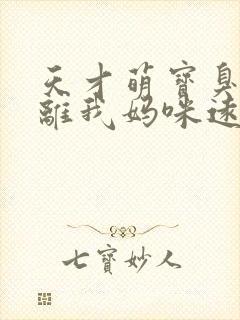 天才萌寶臭
離我媽咪遠
七寶妙人